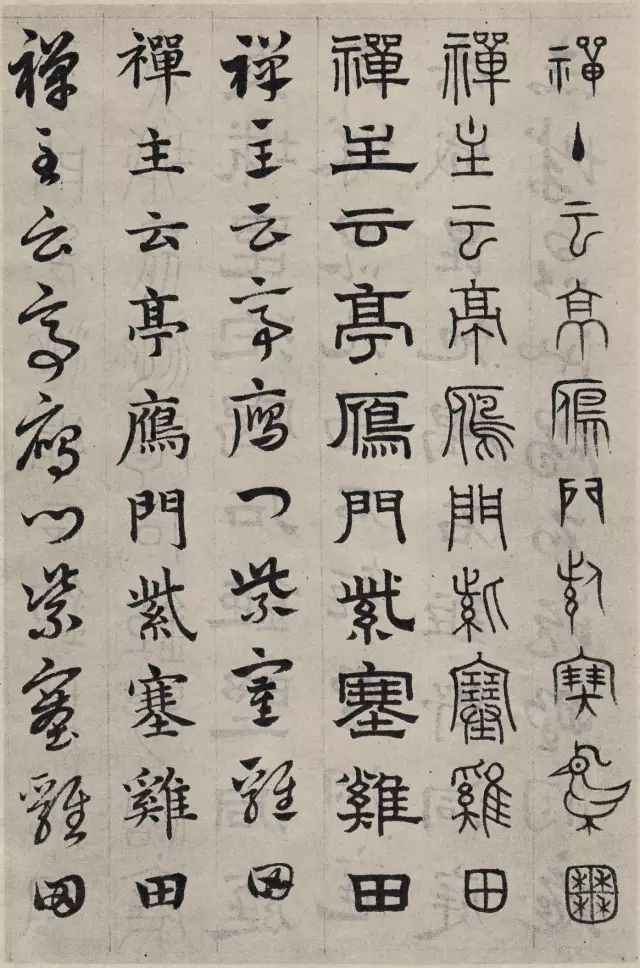 禪主云亭鴈門紫塞雞田
禪主云亭鴈門紫塞雞田
禪主云亭鴈門紫塞雞田
禪主云亭鴈門紫塞雞田
禪主云亭鴈門紫塞雞田
禪主云亭鴈門紫塞雞田